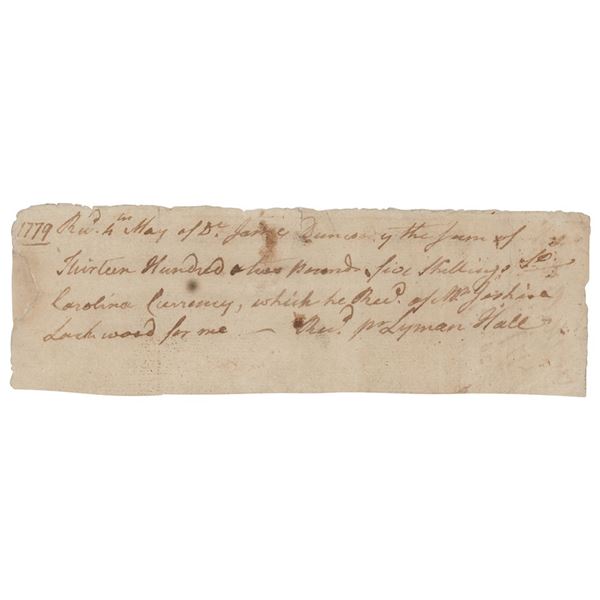 1779 Recd. 4th May of Dr. James Duncan, the Sum of
Thirteen Hundred & two pounds five Shillings So
Carolina Currency, which he Recd. of Mr Joshua
Lockwood for me — Recd. pr Lyman Hall